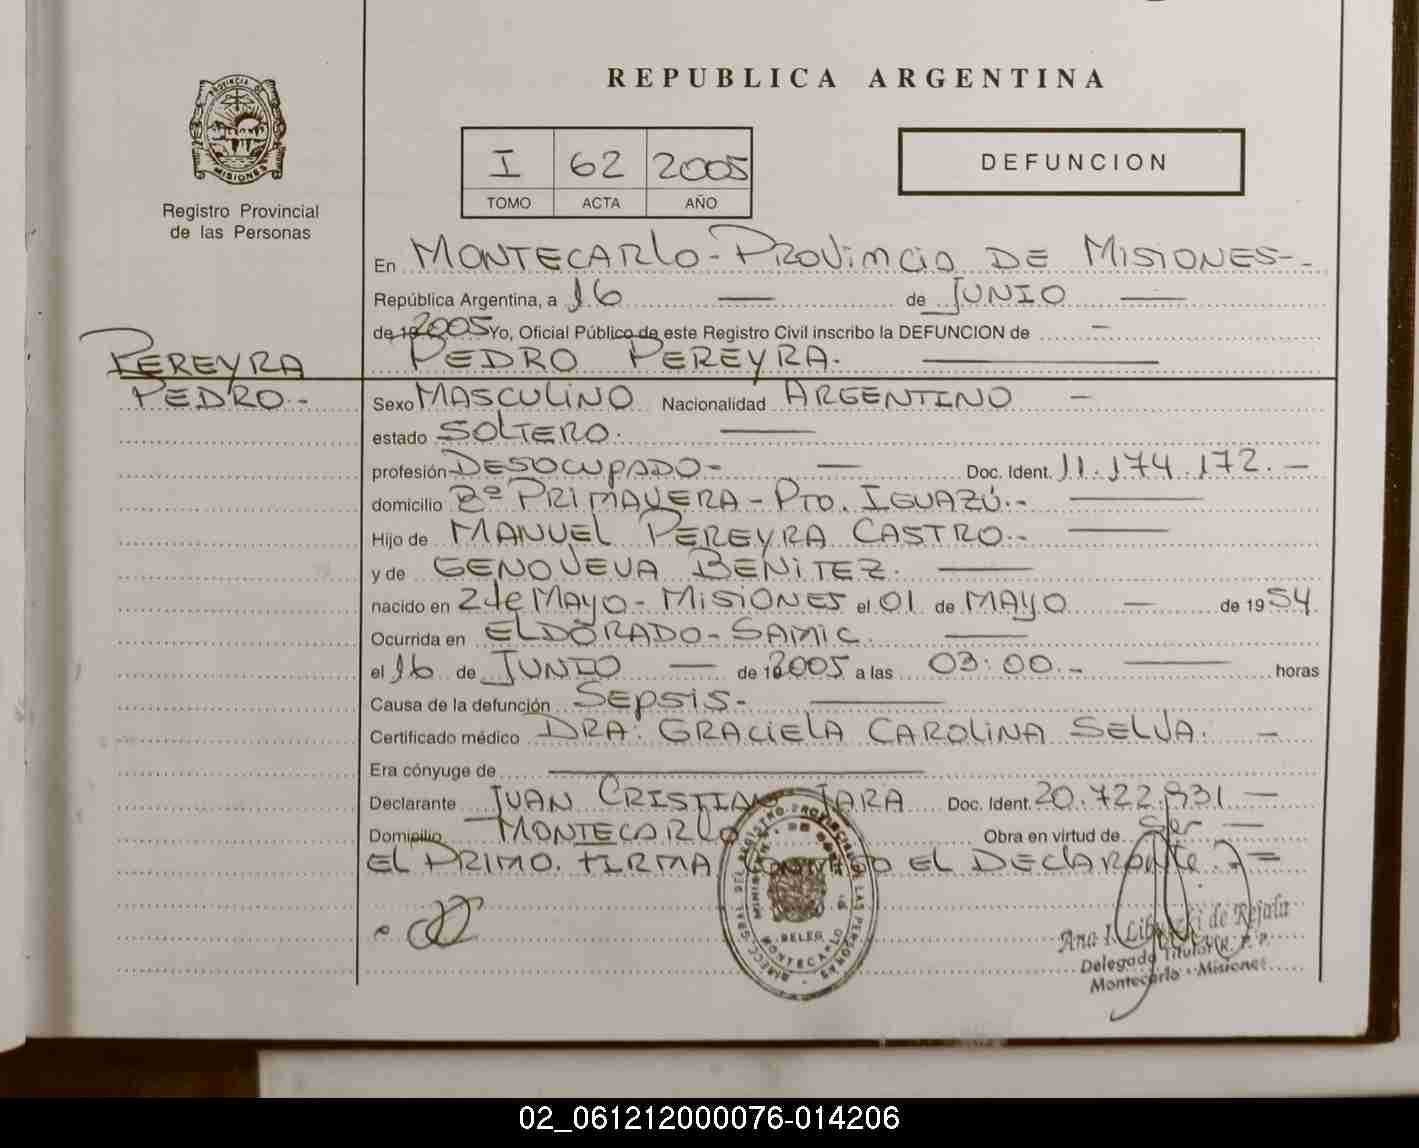 REPUBLICA ARGENTINA
PROVINCIA DE
MISIONES
Registro Provincial
de las Personas
I 62 2005
TOMO ACTA AÑO
DEFUNCION
En MONTECARLO - PROVINCIA DE MISIONES --
República Argentina, a 16 — de JUNIO —
de 19 2005 Yo, Oficial Público de este Registro Civil inscribo la DEFUNCION de —
PEREYRA PEDRO PEREYRA. —
PEDRO.- Sexo MASCULINO Nacionalidad ARGENTINO —
estado SOLTERO. —
profesión DESOCUPADO- — Doc. Ident. 11.174.172. —
domicilio 2º PRIMAVERA - Pto. IGUAZÚ.- —
Hijo de MANUEL PEREYRA CASTRO.- —
y de GENOVEVA BENITEZ. —
nacido en 2 de MAYO - MISIONES el 01 de MAYO — de 1954.
Ocurrida en ELDORADO - SAMIC. —
el 16 de JUNIO — de 2005 a las 03:00.- — horas
Causa de la defunción SEPSIS- —
Certificado médico DRA. GRACIELA CAROLINA SELVA. —
Era cónyuge de —
Declarante JUAN CRISTIAN JARA Doc. Ident. 20.722.931 —
Domicilio MONTECARLO Obra en virtud de Ser —
EL PRIMO. FIRMA CONMIGO EL DECLARANTE.-
Ana I. de Rejala
Delegado Titular
Montecarlo - Misiones
02_061212000076-014206